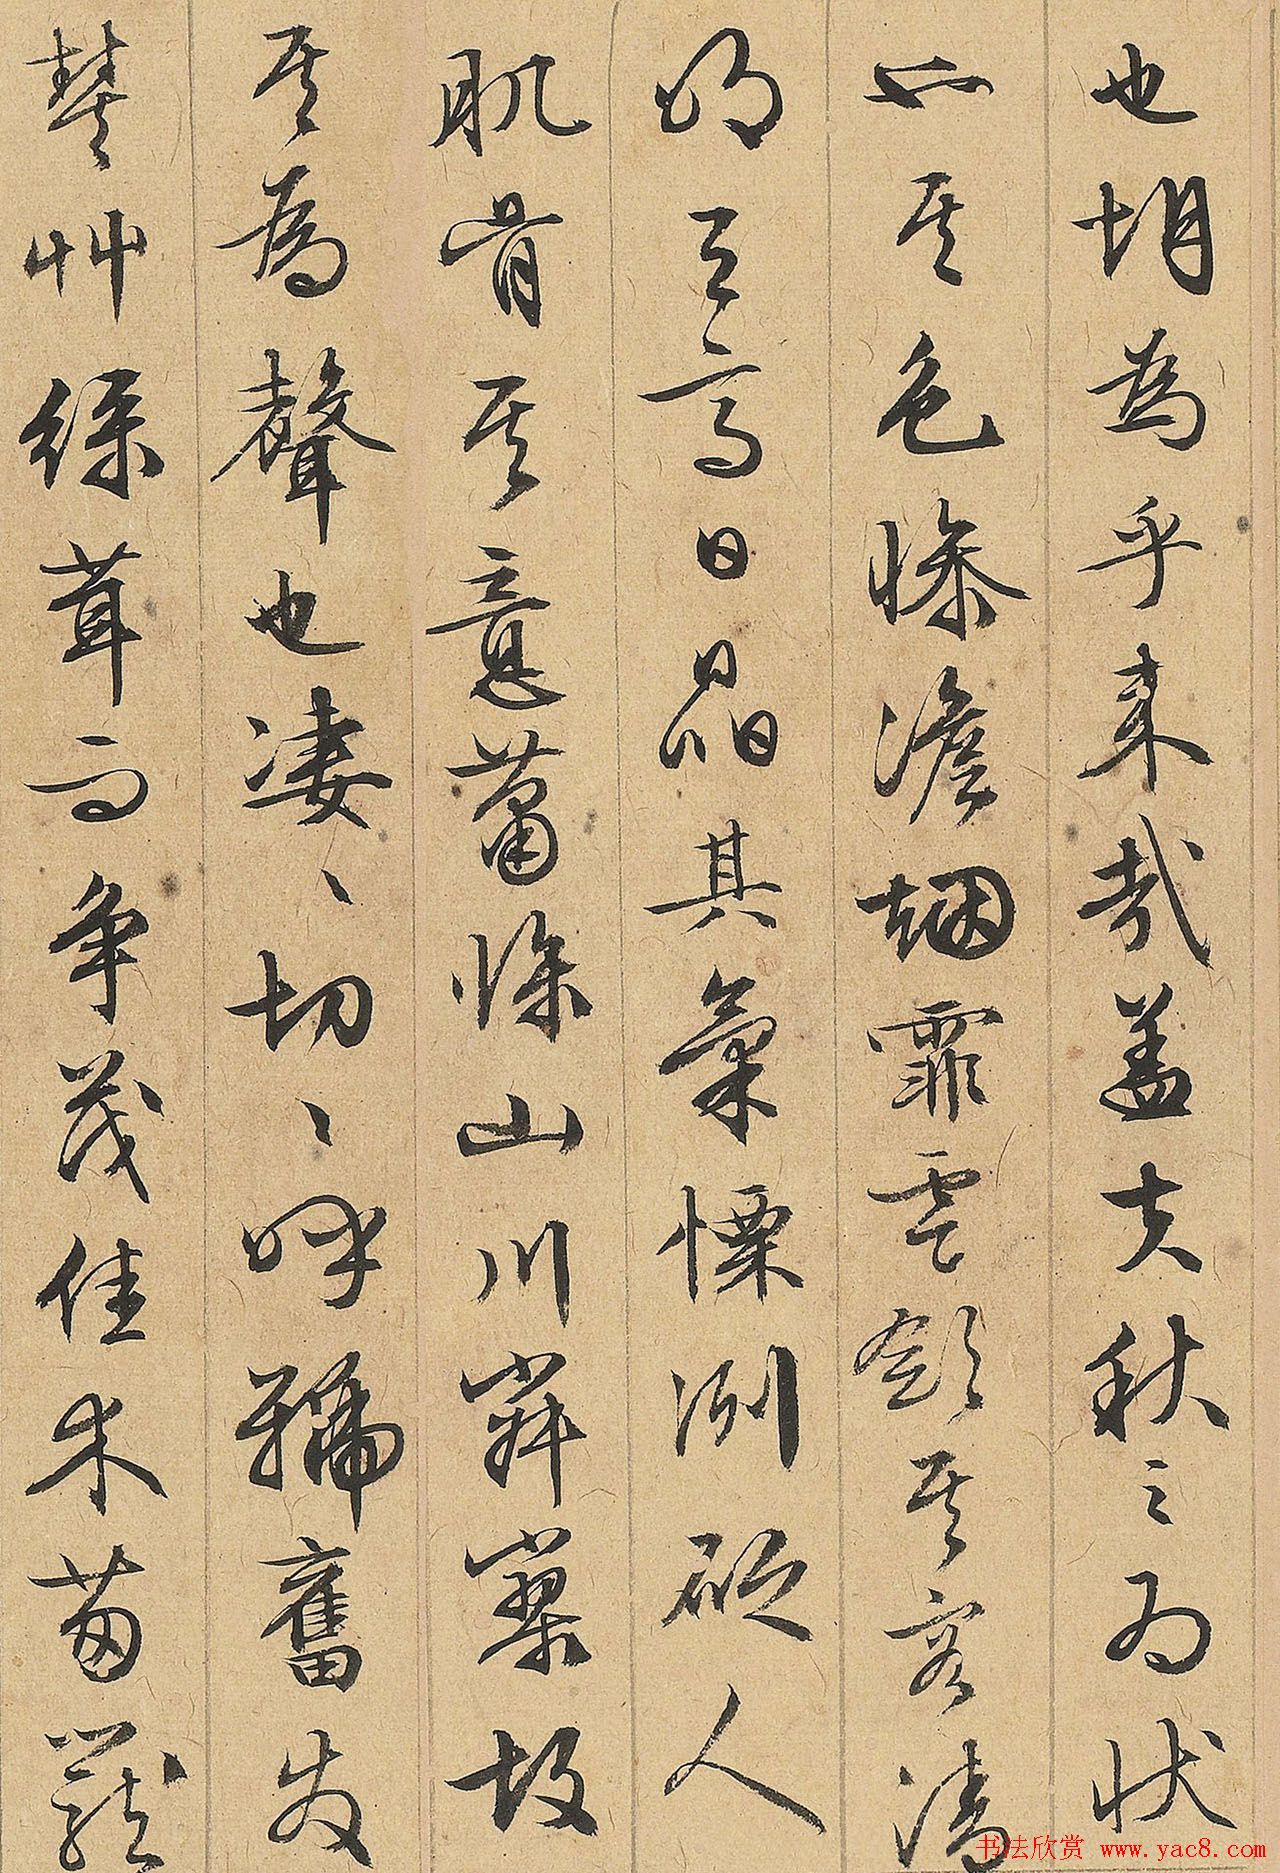 也胡為乎来哉盖夫秋之為状
也其色惨澹烟霏雲斂其容清
明天高日晶其氣慄冽砭人
肌骨其意蕭條山川寂寥故
其為聲也凄、切、呼號奮發
豐艸綠茸而争茂佳木蔥蘢
书法欣赏 www.yac8.com